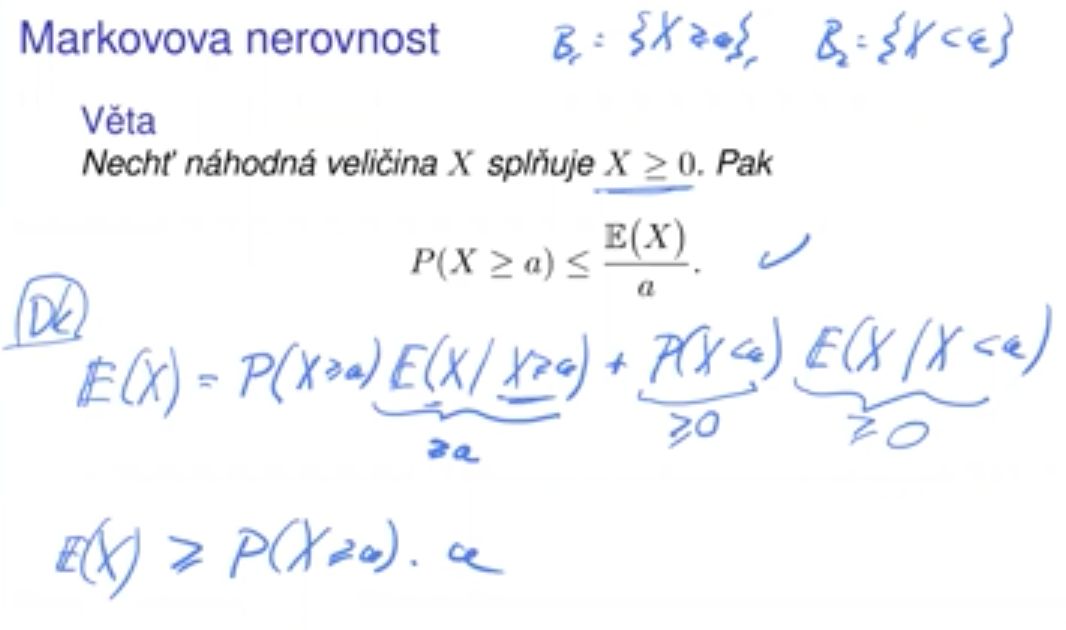 Markovova nerovnost B₁ = {X ≥ a}, B₂ = {X < a}
Věta
Nechť náhodná veličina X splňuje X ≥ 0. Pak
P(X ≥ a) ≤ 𝔼(X)/a. ✓
Dk
𝔼(X) = P(X≥a) E(X/X≥a) + P(X<a) E(X/X<a)
≥a ≥0 ≥0
𝔼(X) ≥ P(X≥a). a